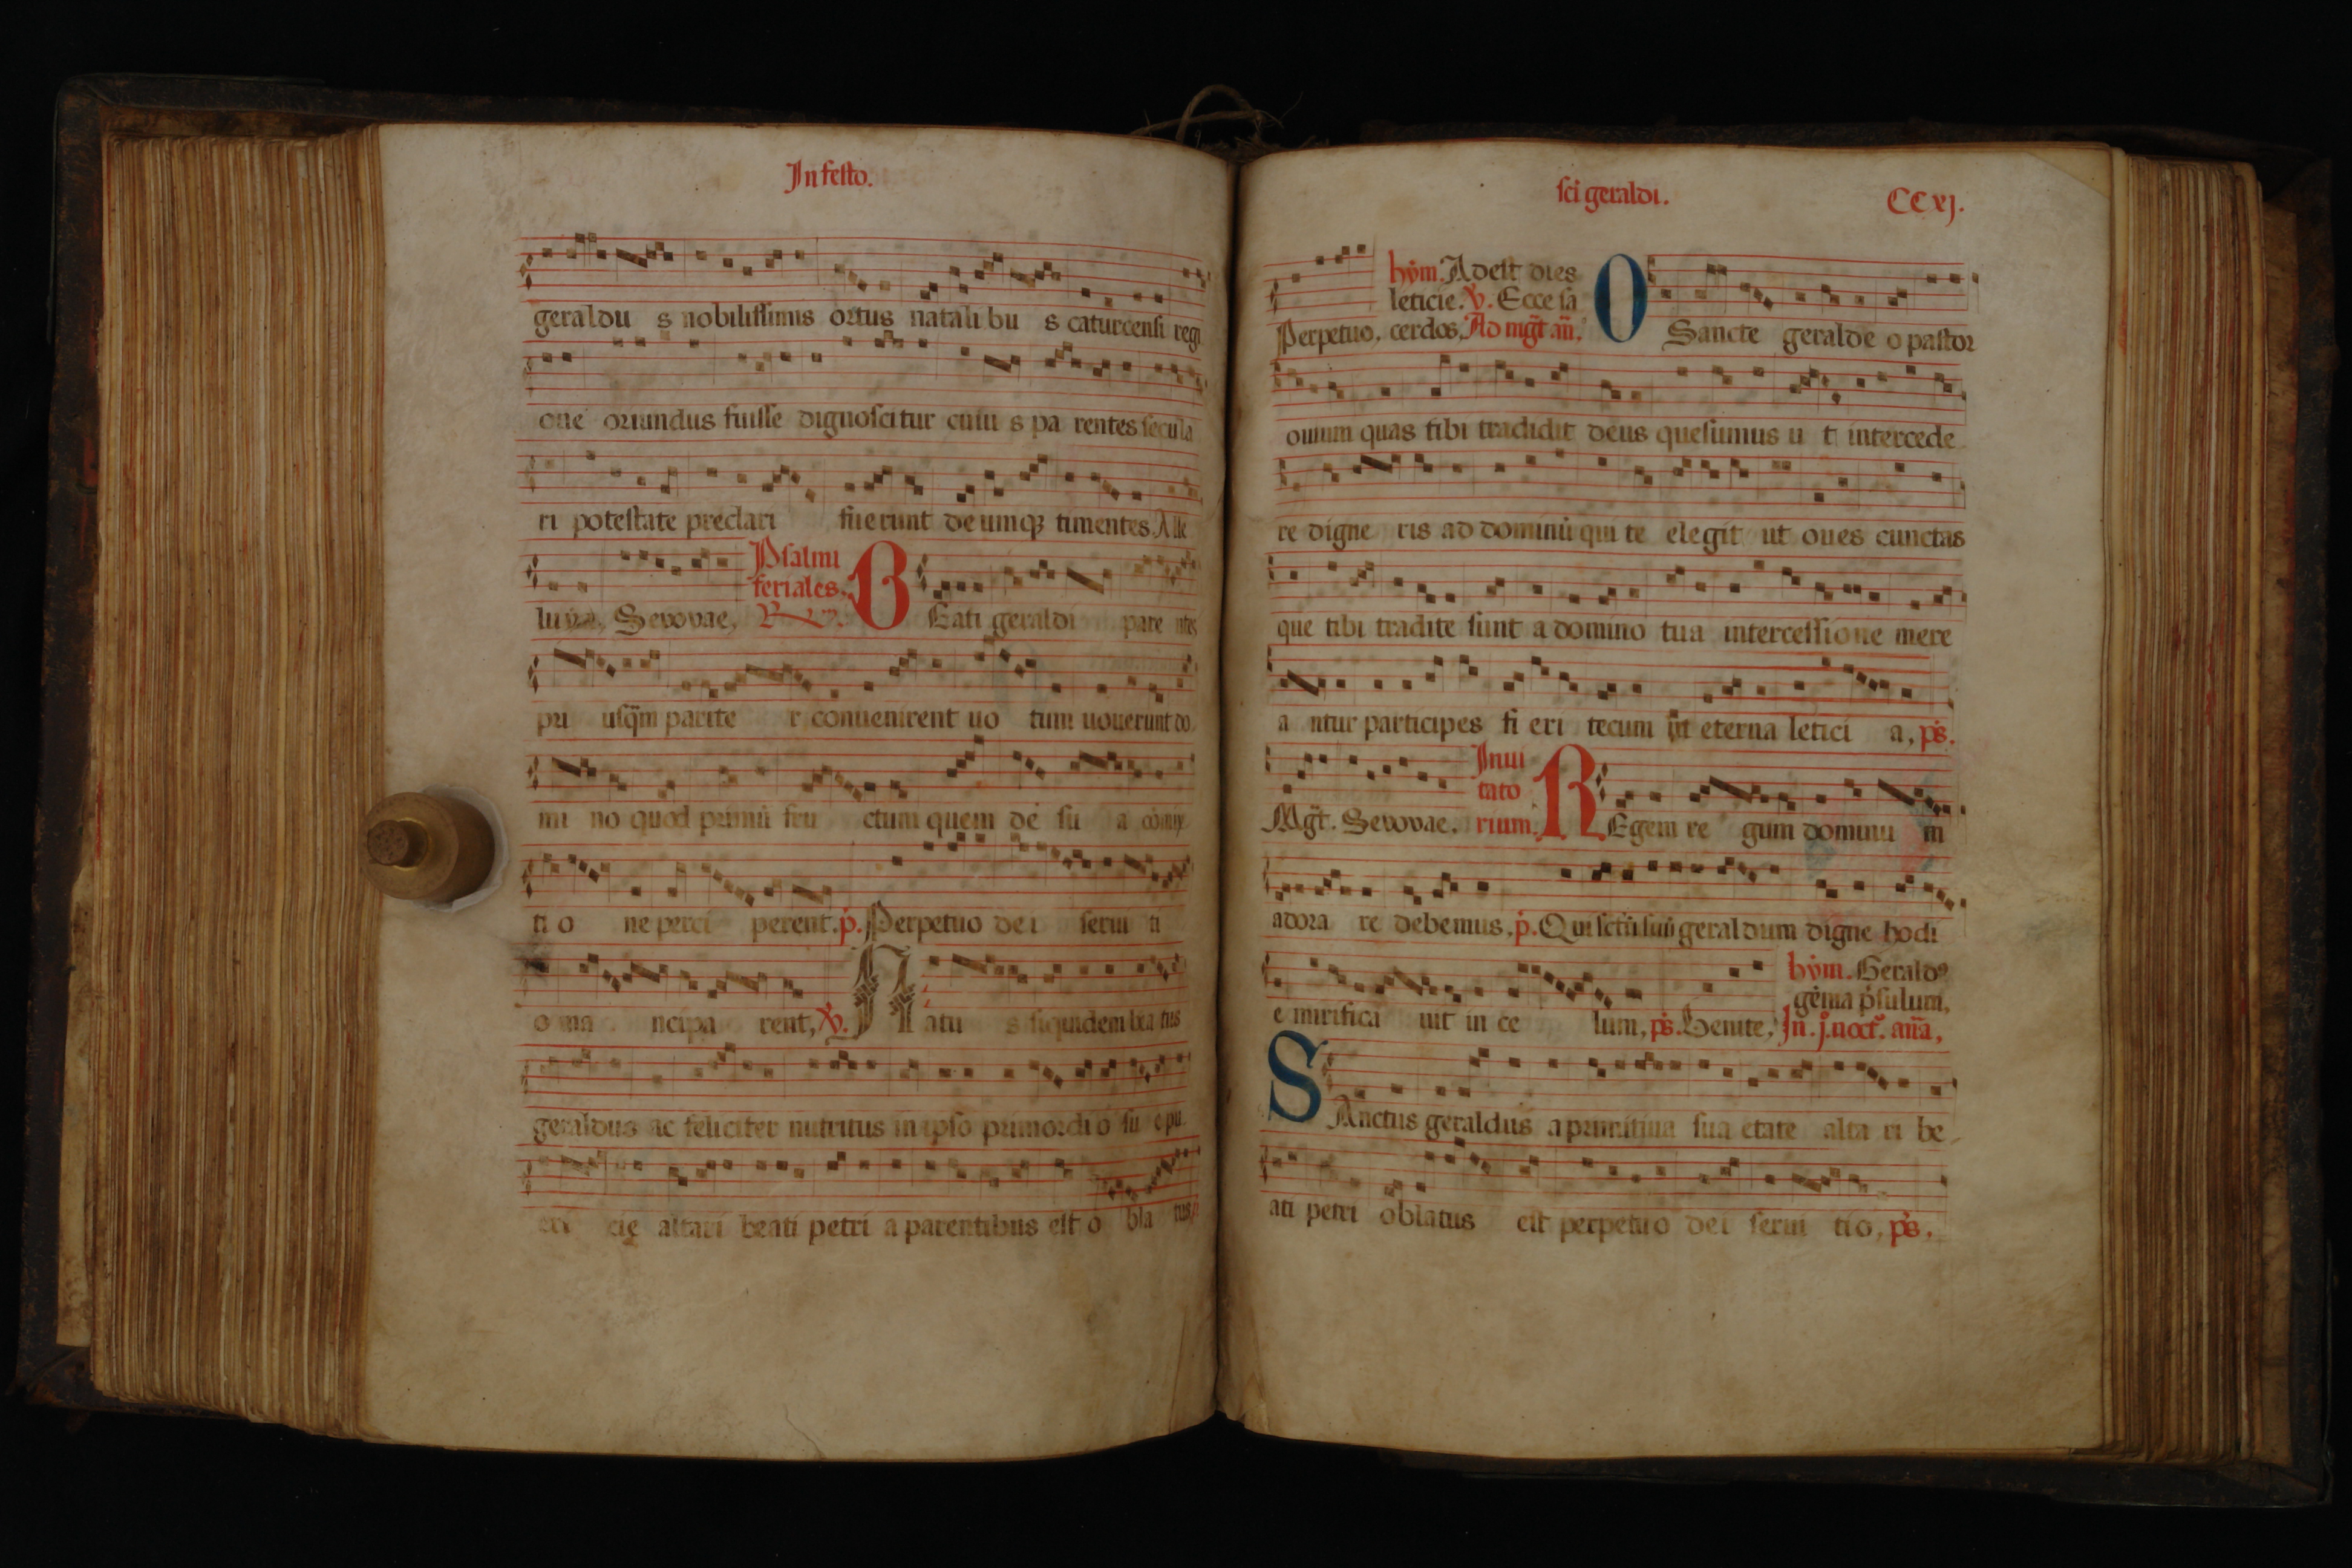 In festo.
geraldu s nobilissimis ortus natali bu s caturcensi regi
one oriundus fuisse dignoscitur cuiu s pa rentes secula
ri potestate preclari fuerunt deumqȝ timentes. Alle
luya, Seuouae, Psalmi
feriales.
B Eati geraldi pare ntes
pri usq̃m parite r conuenirent uo tum uouerunt do
mi no quod primũ fru ctum quem de su a
ti o ne perci perent. p. Perpetuo dei serui ti
o ma ncipa rent, ℣. N atu s siquidem bea tus
geraldus ac feliciter nutritus in ipso primordi o su e pu
eri cię altari beati petri a parentibus est o bla tus
sci geraldi. CC xj.
hym. Adest dies
leticie. ℣. Ecce sa
Perpetuo, cerdos, Ad mgt̃ añ. O Sancte geralde o pastor
ouium quas tibi tradidit deus quesumus u t intercede
re digne ris ad dominũ qui te elegit ut oues cunctas
que tibi tradite sunt a domino tua intercessione mere
a ntur participes fi eri tecum in eterna letici a, ps.
Mgt̃. Seuouae. Inui
tato
rium. R Egem re gum dominu m
adora re debemus. p. Qui sctũ suũ geral dum digne hodi
e mirifica uit in ce lum, ps. Uenite, hym. Gerald9
gẽma p̃sulum,
In. j. noct. aña,
S Anctus geraldus a primitiua sua etate alta ri be
ati petri oblatus est perpetuo dei serui tio, ps,